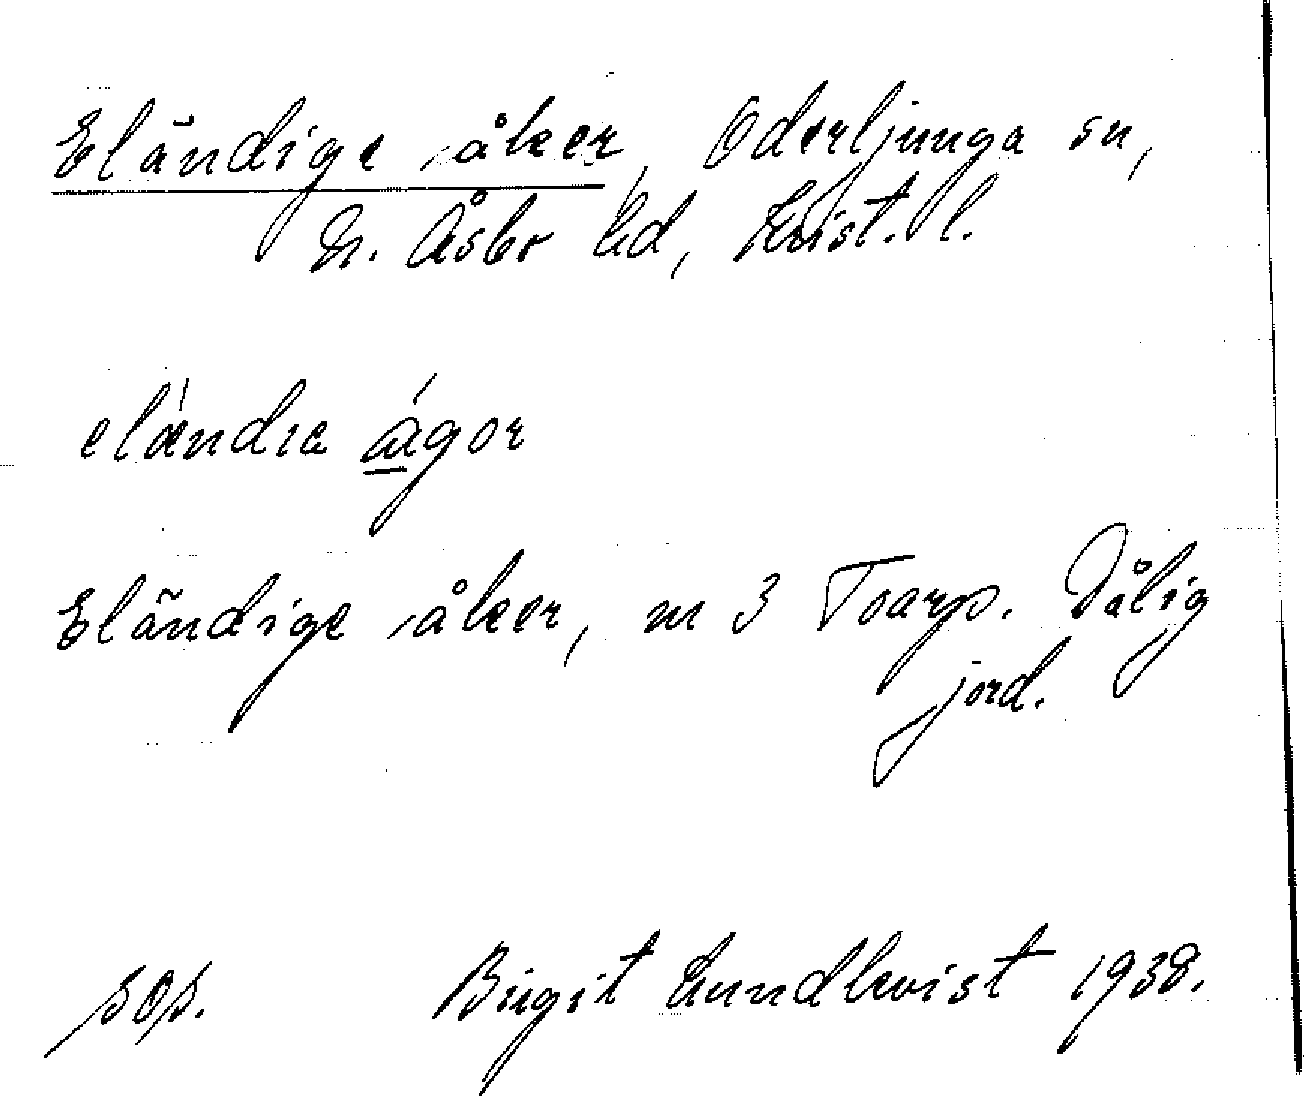 Eländige åker, Oderljunga sn,
N. Åsbo hd, Krist. l.
eländia ågor
Eländige åker, nr 3 Toarp. Dålig
jord.
sos. Birgit Lundkvist 1938.